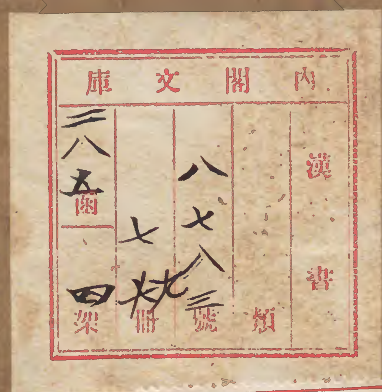 內閣文庫
漢書
類
八七八三號
七冊
二八五函
四架